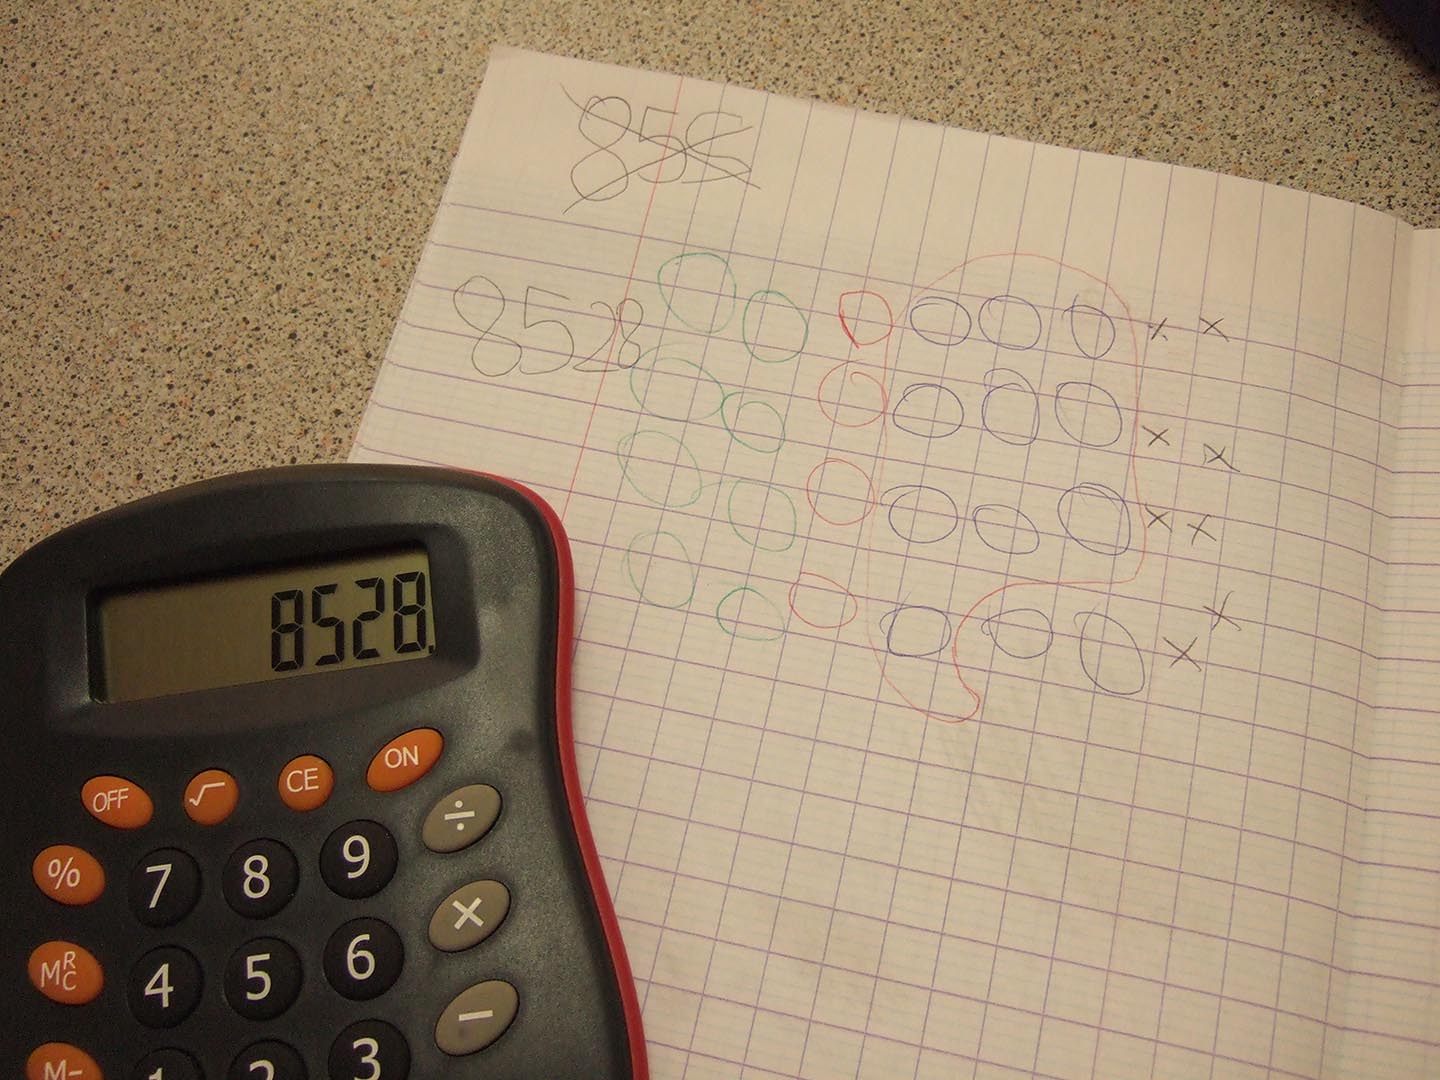 858
8528
× ×
× ×
× ×
× ×
8528.
OFF √ CE ON
% 7 8 9 ÷
MRC 4 5 6 ×
M− 1 2 3 −